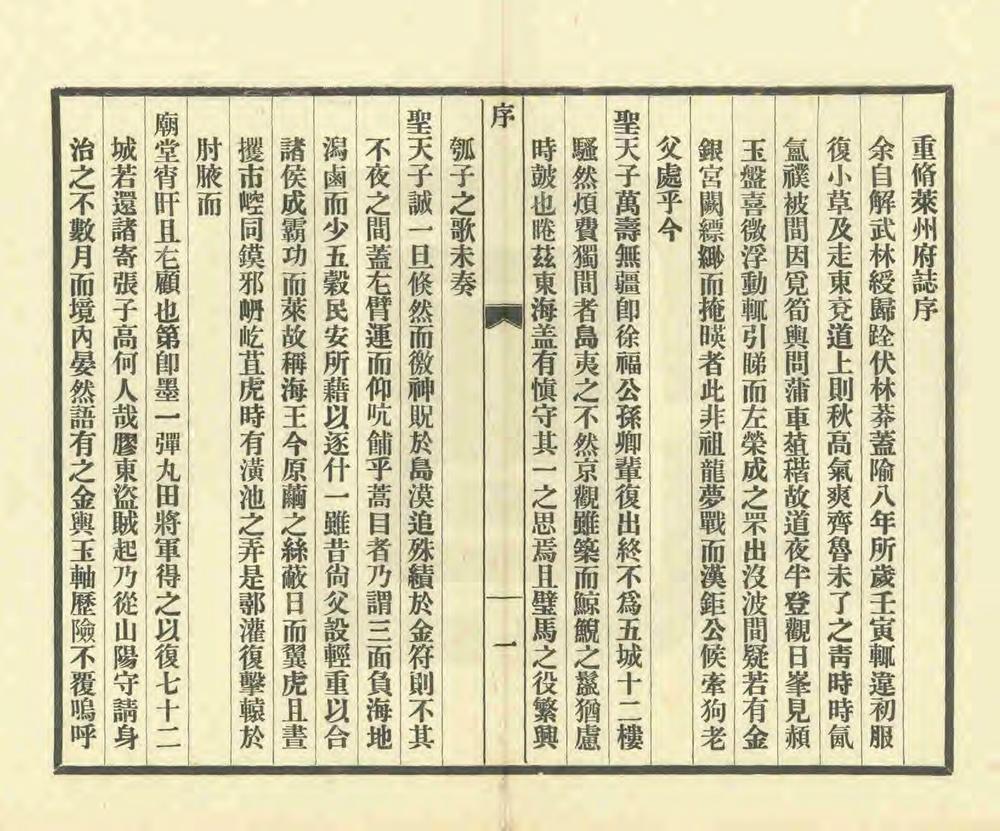 重脩萊州府誌序
余自解武林綬歸跧伏林莽蓋隃八年所歲壬寅輒違初服
復小草及走東兗道上則秋高氣爽齊魯未了之靑時時氤
氳襆被間因覓筍輿問蒲車葅稭故道夜半登觀日峯見赬
玉盤喜微浮動輒引睇而左榮成之罘出沒波間疑若有金
銀宮闕縹緲而掩暎者此非祖龍夢戰而漢鉅公候牽狗老
父處乎今
聖天子萬壽無疆卽徐福公孫卿輩復出終不爲五城十二樓
騷然煩費獨間者島夷之不然京觀雖築而鯨鯢之鬣猶慮
時皷也睠茲東海盖有愼守其一之思焉且璧馬之役繁興
序
一
瓠子之歌未奏
聖天子誠一旦倐然而徼神貺於島漠追殊績於金符則不其
不夜之間蓋左臂運而仰吭餔乎蒿目者乃謂三面負海地
潟鹵而少五穀民安所藉以逐什一雖昔尙父設輕重以合
諸侯成霸功而萊故稱海王今原繭之絲蔽日而翼虎且晝
攫市崆同鏌邪㠊屹苴虎時有潢池之弄是鄣灌復擊轅於
肘腋而
廟堂宵旰且左顧也第卽墨一彈丸田將軍得之以復七十二
城若還諸寄張子高何人哉膠東盜賊起乃從山陽守請身
治之不數月而境內晏然語有之金輿玉軸歷險不覆嗚呼